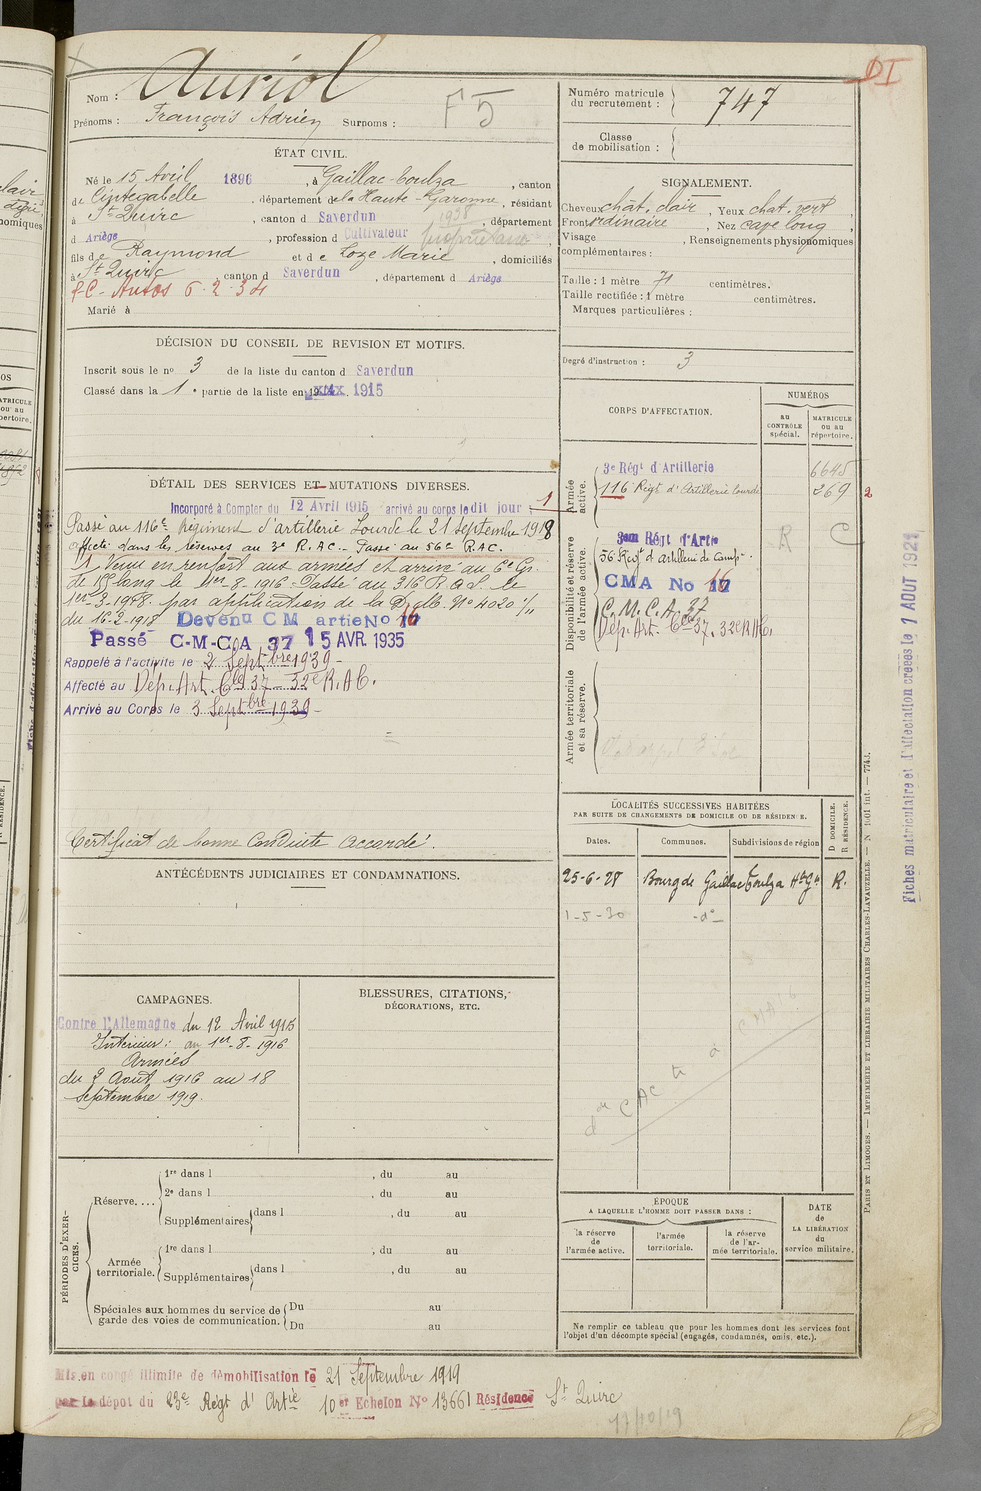 Nom : Auriol
Prénoms : François Adrien Surnoms :
F5
ÉTAT CIVIL.
Né le 15 Avril 1896, à Gaillac-Toulza, canton
de Cintegabelle, département de la Haute-Garonne, résidant
à St Quirc, canton d Saverdun, département
1938
d Ariège, profession d Cultivateur propriétaire
fils de Raymond et de Loze Marie, domiciliés
à St Quirc, canton d Saverdun, département d Ariège
6.2.34
Marié à
DÉCISION DU CONSEIL DE REVISION ET MOTIFS.
Inscrit sous le nº 3 de la liste du canton d Saverdun
Classé dans la 1e partie de la liste en 1915
DÉTAIL DES SERVICES ET MUTATIONS DIVERSES.
Incorporé à Compter du 12 Avril 1915 arrivé au corps le dit jour 1
Passé au 116e régiment d'artillerie Lourde le 21 septembre 1918
Affecté dans les réserves au 3e R.A.C. - Passé au 56e R.A.C.
1 Venu en renfort aux armées et arrivé au 6e Gr.
de 155 long le 1er-8-1916 - Passé au 316 R.A.L. le
1er-3-1918. par application de la D. glle. Nº 4020 1/11
du 16-2-1918 Devenu C M artie No 17
Passé C-M-C A 37 15 AVR. 1935
Rappelé à l'activité le 2 Septbre 1939 -
Affecté au Dép. Art. Cle 37 - 32e R.A.C.
Arrivé au Corps le 3 Septbre 1939 -
Certificat de bonne Conduite Accordé.
ANTÉCÉDENTS JUDICIAIRES ET CONDAMNATIONS.
CAMPAGNES.
Contre l'Allemagne du 12 Avril 1915
Intérieur : au 1er-8-1916
Armées
du 2 Août 1916 au 18
Septembre 1919.
BLESSURES, CITATIONS,
DÉCORATIONS, ETC.
PÉRIODES D'EXERCICES.
Réserve....
1re dans l , du au
2e dans l , du au
Supplémentaires dans l , du au
Armée territoriale.
1re dans l , du au
Supplémentaires dans l , du au
Spéciales aux hommes du service de garde des voies de communication.
Du au
Du au
Mis en congé illimité de démobilisation le 21 Septembre 1919
par le dépôt du 23e Régt d' Artie 10er Echelon Nº 13661 Résidence St Quirc
17/10/19
DI
Numéro matricule
du recrutement : 747
Classe
de mobilisation :
SIGNALEMENT.
Cheveux chât. clair, Yeux chat. vert,
Front ordinaire, Nez cave long,
Visage , Renseignements physionomiques
complémentaires :
Taille : 1 mètre 71 centimètres.
Taille rectifiée : 1 mètre centimètres.
Marques particulières :
Degré d'instruction : 3
CORPS D'AFFECTATION.
NUMÉROS
au CONTRÔLE spécial.
MATRICULE ou au répertoire.
Armée active.
3e Régt d'Artillerie 6645
116 Régt d'Artillerie lourde 269 2
Disponibilité et réserve de l'armée active.
3em Régt d'Artie R C
56 Regt d'artillerie de Campe
CMA No 17
C. M. C. A. 37
Dép. Art. Cle 37. 32e R.A.C.
Armée territoriale et sa réserve.
LOCALITÉS SUCCESSIVES HABITÉES
PAR SUITE DE CHANGEMENTS DE DOMICILE OU DE RÉSIDENCE.
Dates. Communes. Subdivisions de région
D DOMICILE. R RÉSIDENCE.
25-6-28 Bourg de Gaillac Toulza Hte Gne R.
1-5-30 -do-
ÉPOQUE
A LAQUELLE L'HOMME DOIT PASSER DANS :
la réserve de l'armée active.
l'armée territoriale.
la réserve de l'armée territoriale.
DATE de LA LIBÉRATION du service militaire.
Ne remplir ce tableau que pour les hommes dont les services font
l'objet d'un décompte spécial (engagés, condamnés, omis, etc.).
Fiches matriculaire et d'affectation créées le 1 AOUT 1921
PARIS ET LIMOGES. — IMPRIMERIE ET LIBRAIRIE MILITAIRES CHARLES-LAVAUZELLE. — N 1001 int. — 7743.